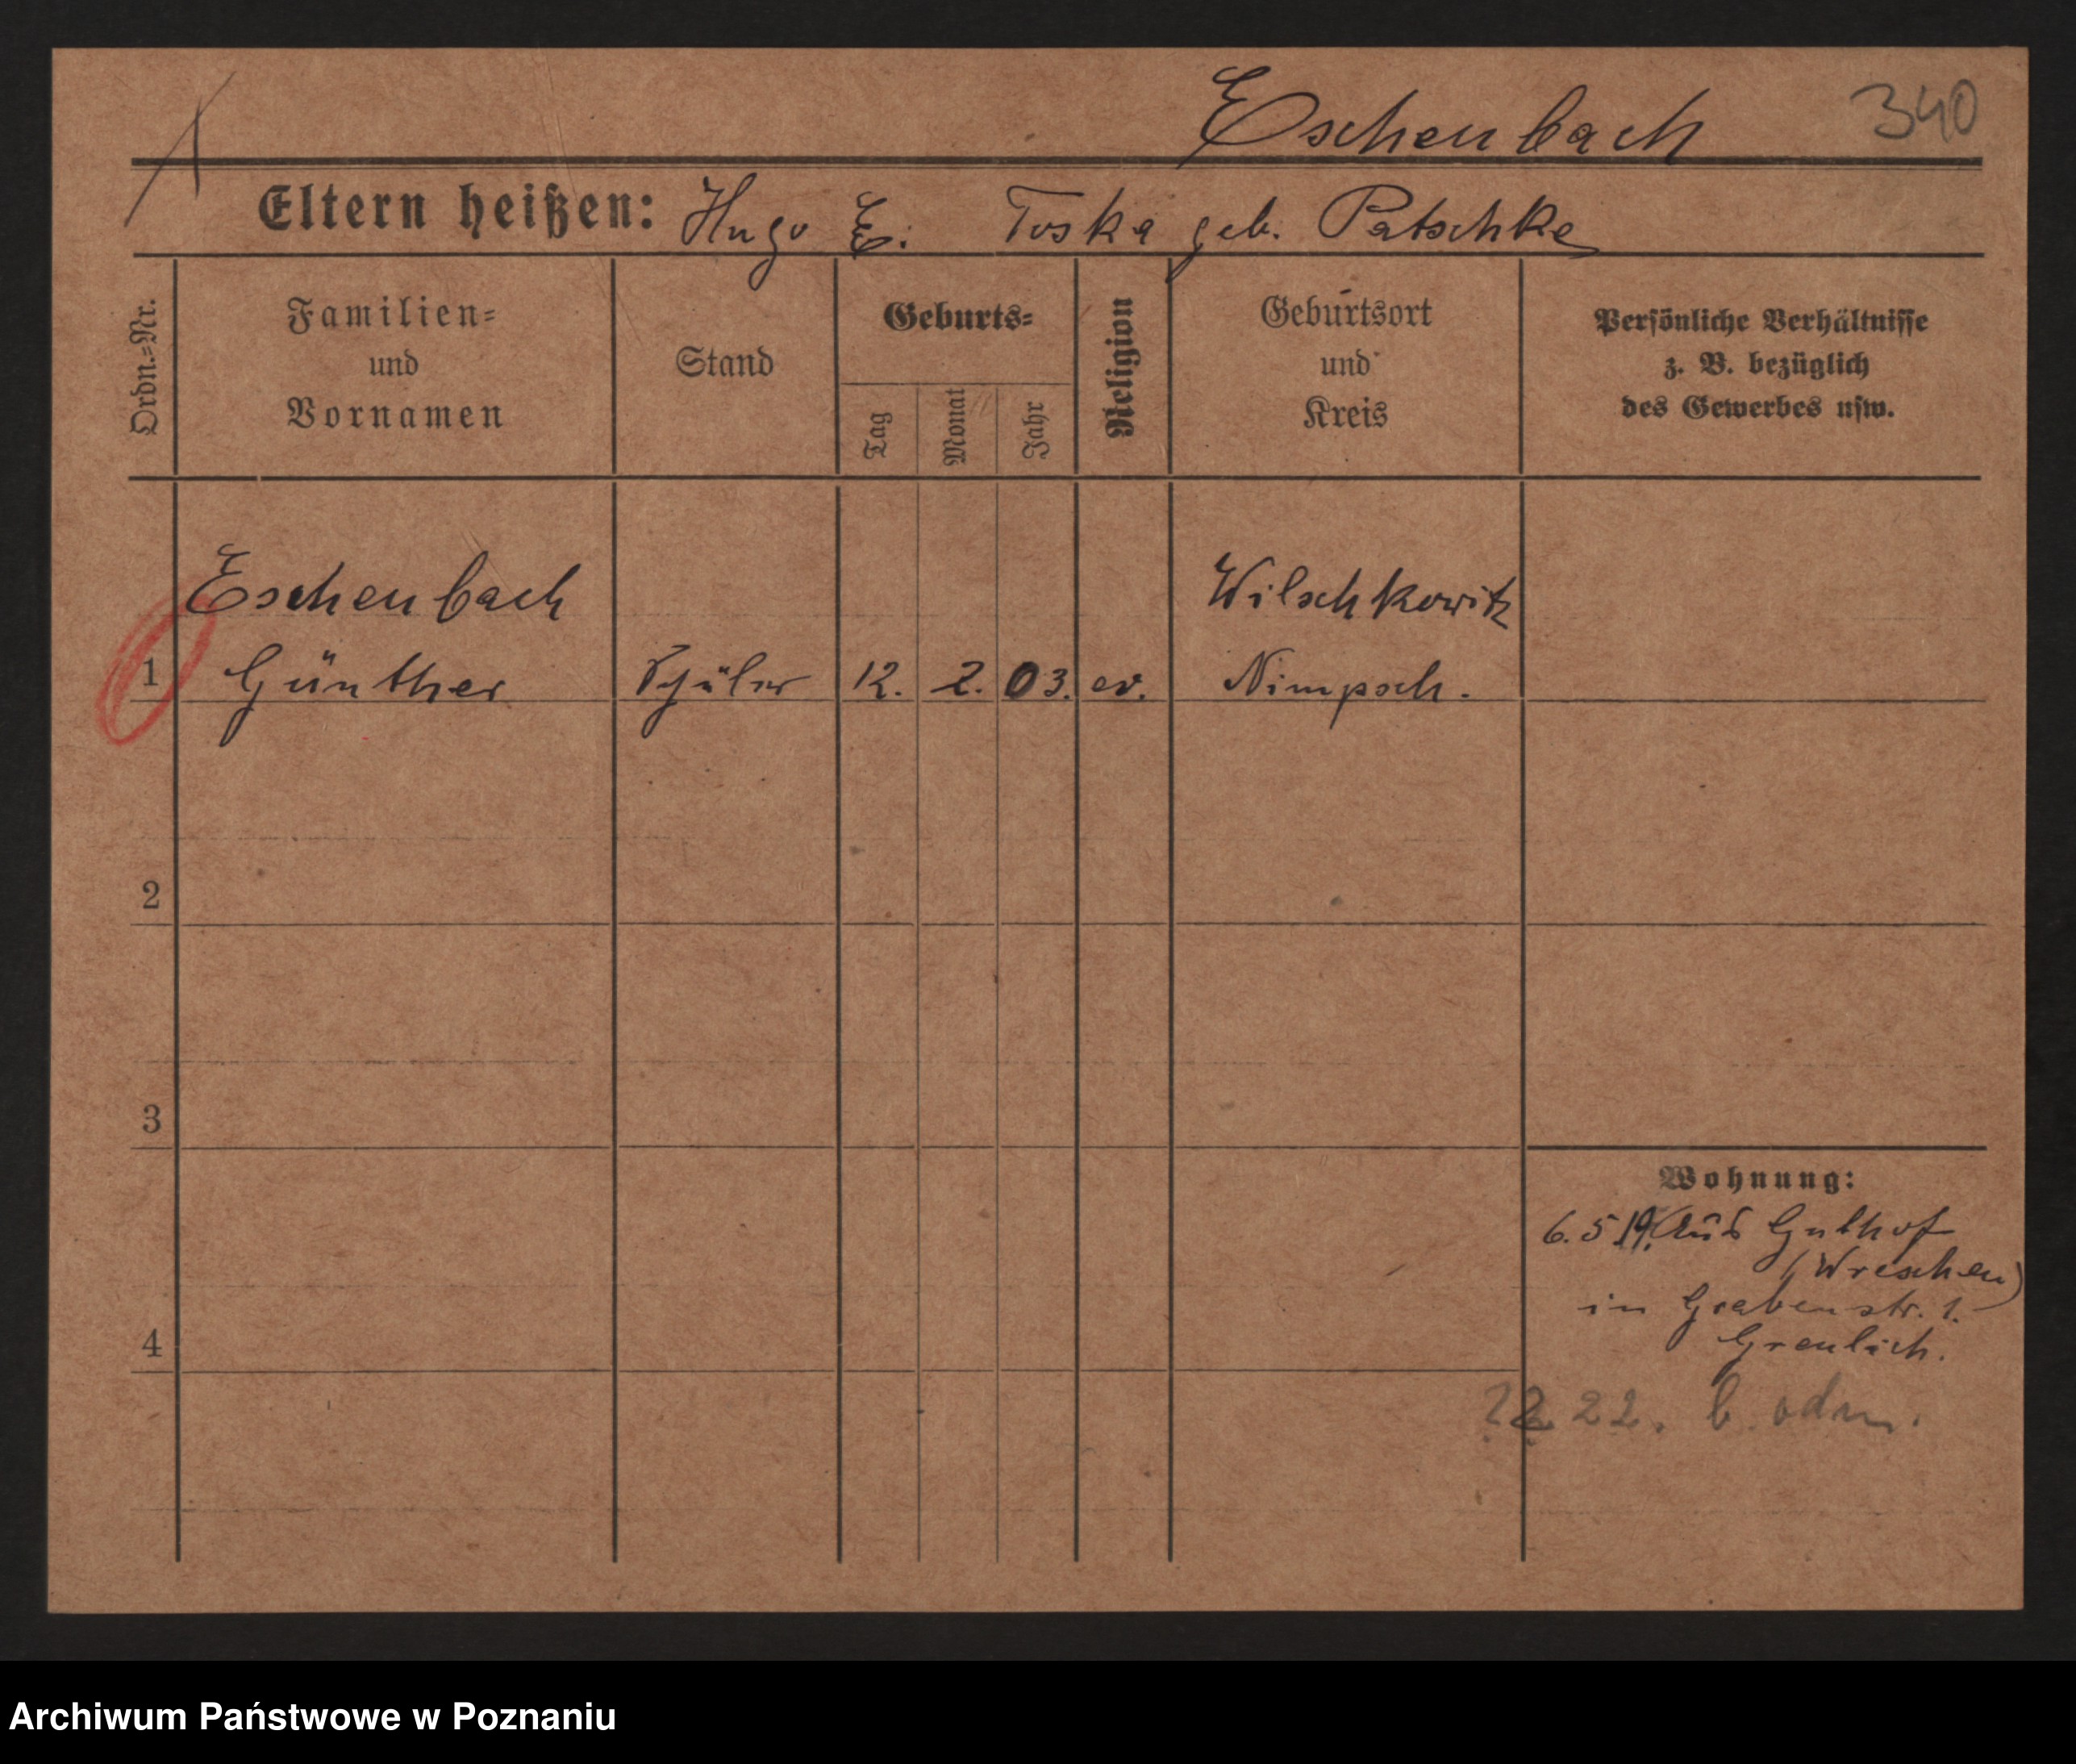 Eschenbach 340
Eltern heißen: Hugo E. Toska geb. Patschke
Ordn.=Nr.
Familien=
und
Vornamen
Stand
Geburts=
Tag
Monat
Jahr
Religion
Geburtsort
und
Kreis
Persönliche Verhältnisse
z. B. bezüglich
des Gewerbes usw.
Eschenbach Wilschkowitz
1 Günther Schüler 12. 2. 03. ev. Nimpsch.
2
3
4
Wohnung:
6.5.19. Aus Guthof
(Wreschen)
in Grabenstr. 1.
Greulich.
22. b. odm.
Archiwum Państwowe w Poznaniu